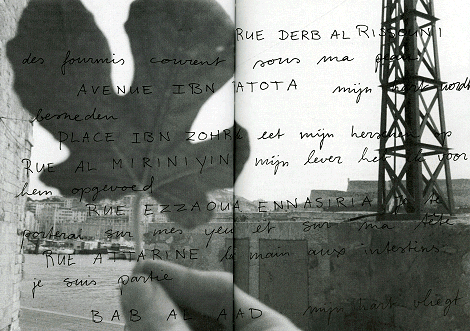 RUE DERB AL RISSOUNI
des fourmis courent sous ma peau
AVENUE IBN ATOTA mijn hart wordt
besneden
PLACE IBN ZOHRA eet mijn hersenen op
RUE AL MIRINIYIN mijn lever heb ik voor
hem opgevoed
RUE EZZAOUA ENNASIRIA je te
porterai sur mes yeux et sur ma tête
RUE ATTARINE la main aux intestins
je suis partie
BAB AL AAD mijn hart vliegt